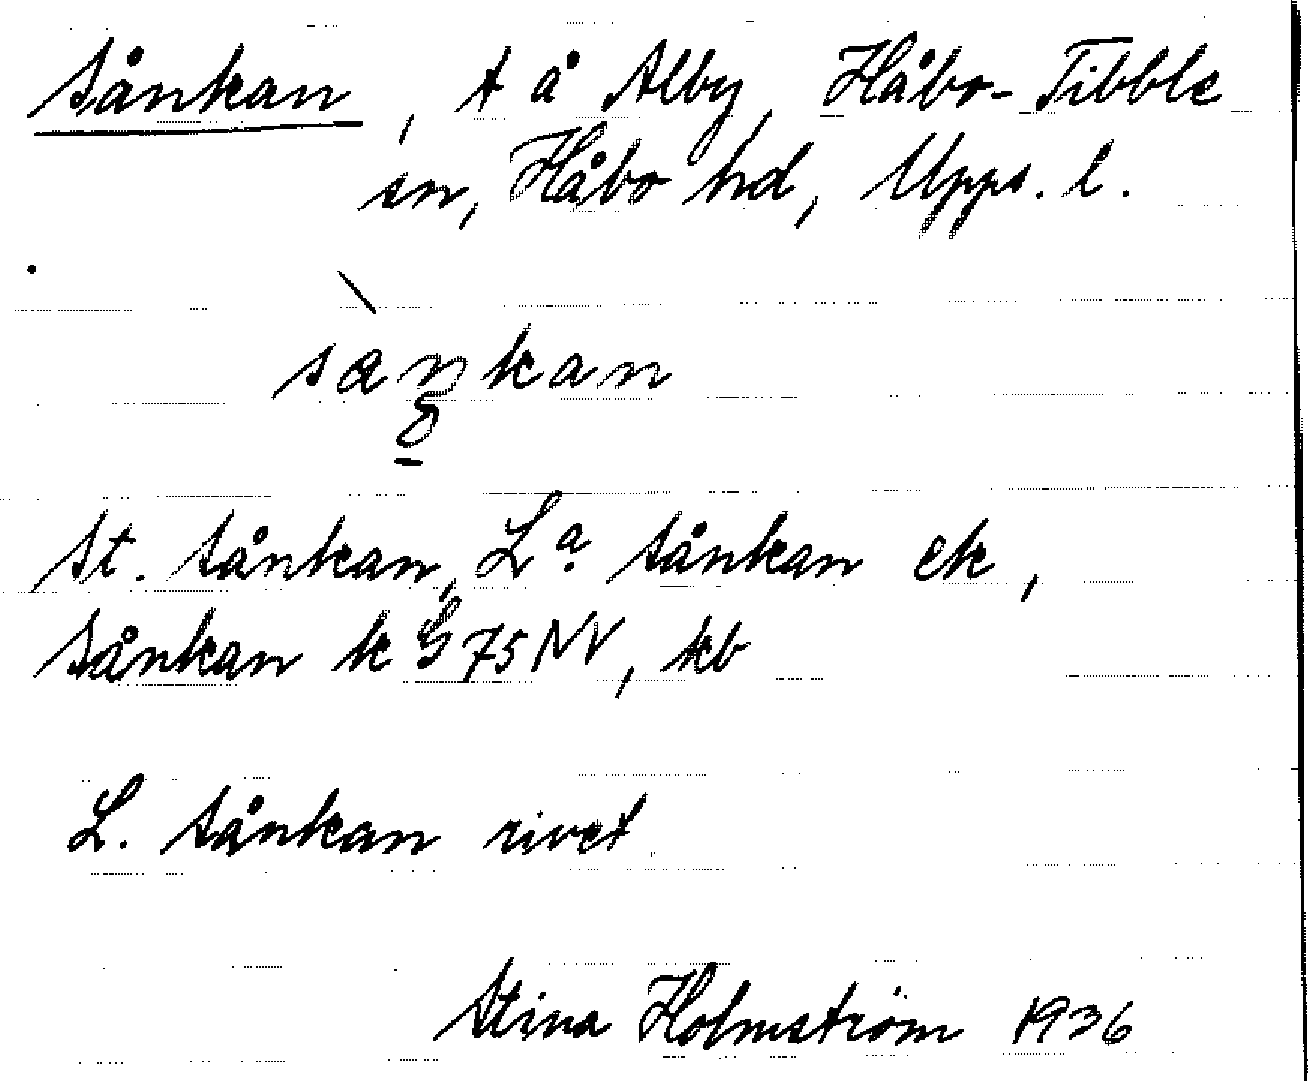 Sånkan, t å Alby, Håbo-Tibble
sn, Håbo hd, Upps. l.
saŋkan
St. Sånkan, La. Sånkan ek,
Sånkan k G 75 NV, kb
L. Sånkan rivet
Stina Holmström 1936